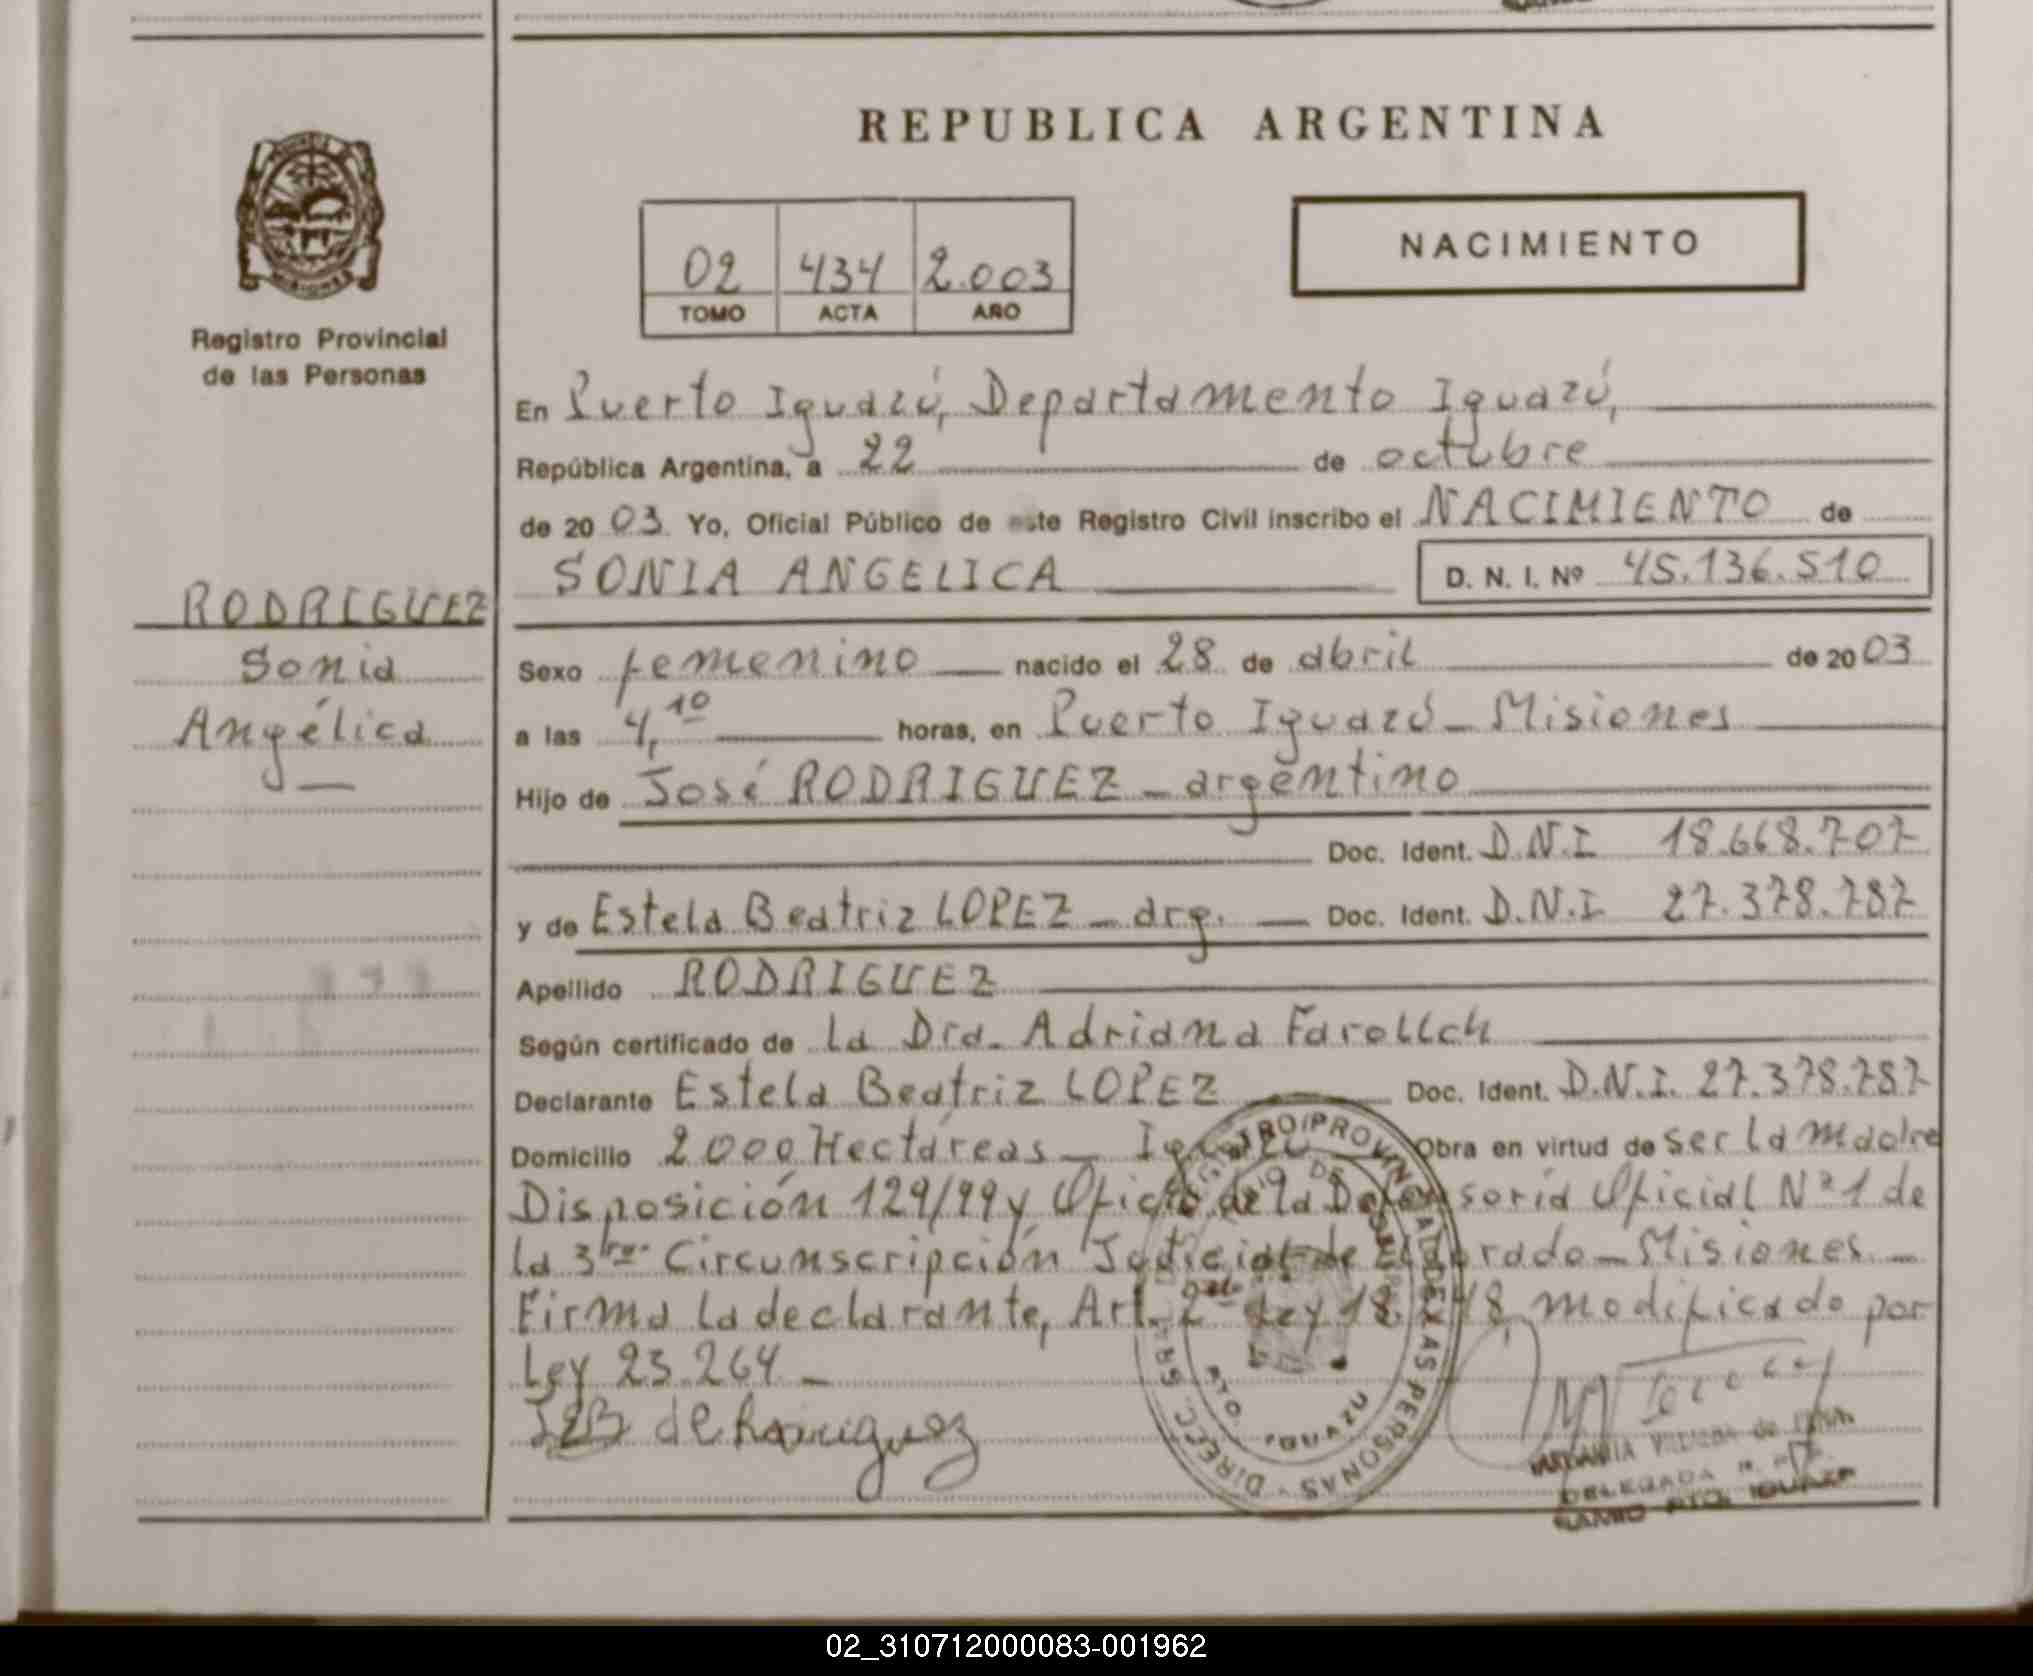 REPUBLICA ARGENTINA
NACIMIENTO
02 434 2.003
TOMO ACTA AÑO
Registro Provincial
de las Personas
En Puerto Iguazú, Departamento Iguazú,
República Argentina, a 22 de octubre
de 20 03 Yo, Oficial Público de este Registro Civil inscribo el NACIMIENTO de
SONIA ANGELICA D. N. I. Nº 45.136.510
RODRIGUEZ
Sonia
Angélica
Sexo femenino nacido el 28 de abril de 20 03
a las 4,10 horas, en Puerto Iguazú - Misiones
Hijo de José RODRIGUEZ - argentino
Doc. Ident. D.N.I 18.668.707
y de Estela Beatriz LOPEZ - arg. Doc. Ident. D.N.I. 27.378.787
Apellido RODRIGUEZ
Según certificado de la Dra. Adriana
Declarante Estela Beatriz LOPEZ Doc. Ident. D.N.I. 27.378.787
Domicilio 2000 Hectáreas - Obra en virtud de ser la madre
Disposición 129/99 y Oficio de la Defensoría Oficial Nº 1 de
la 3ra. Circunscripción Judicial de Eldorado - Misiones. -
Firma la declarante, Art. 2 Ley 18. modificado por
Ley 23.264 -
de Rodriguez
REGISTRO PROVINCIAL DE LAS PERSONAS - DIRECC.
PTO. IGUAZU
DELEGADA
PTO. IGUAZU
02_310712000083-001962